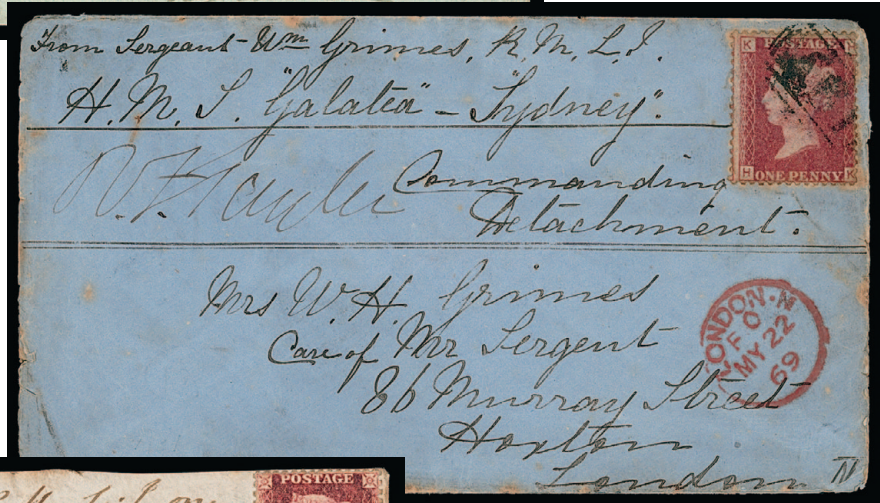 From Sergeant Wm Grimes, R. M. L. I.
H. M. S. "Galatea" - "Sydney".
Commanding
Detachment.
Mrs W. H. Grimes
Care of Mr Sergent
86 Murray Street
Hoxton
London N
K POSTAGE H
H ONE PENNY K
LONDON·N
F O
MY 22
69
POSTAGE